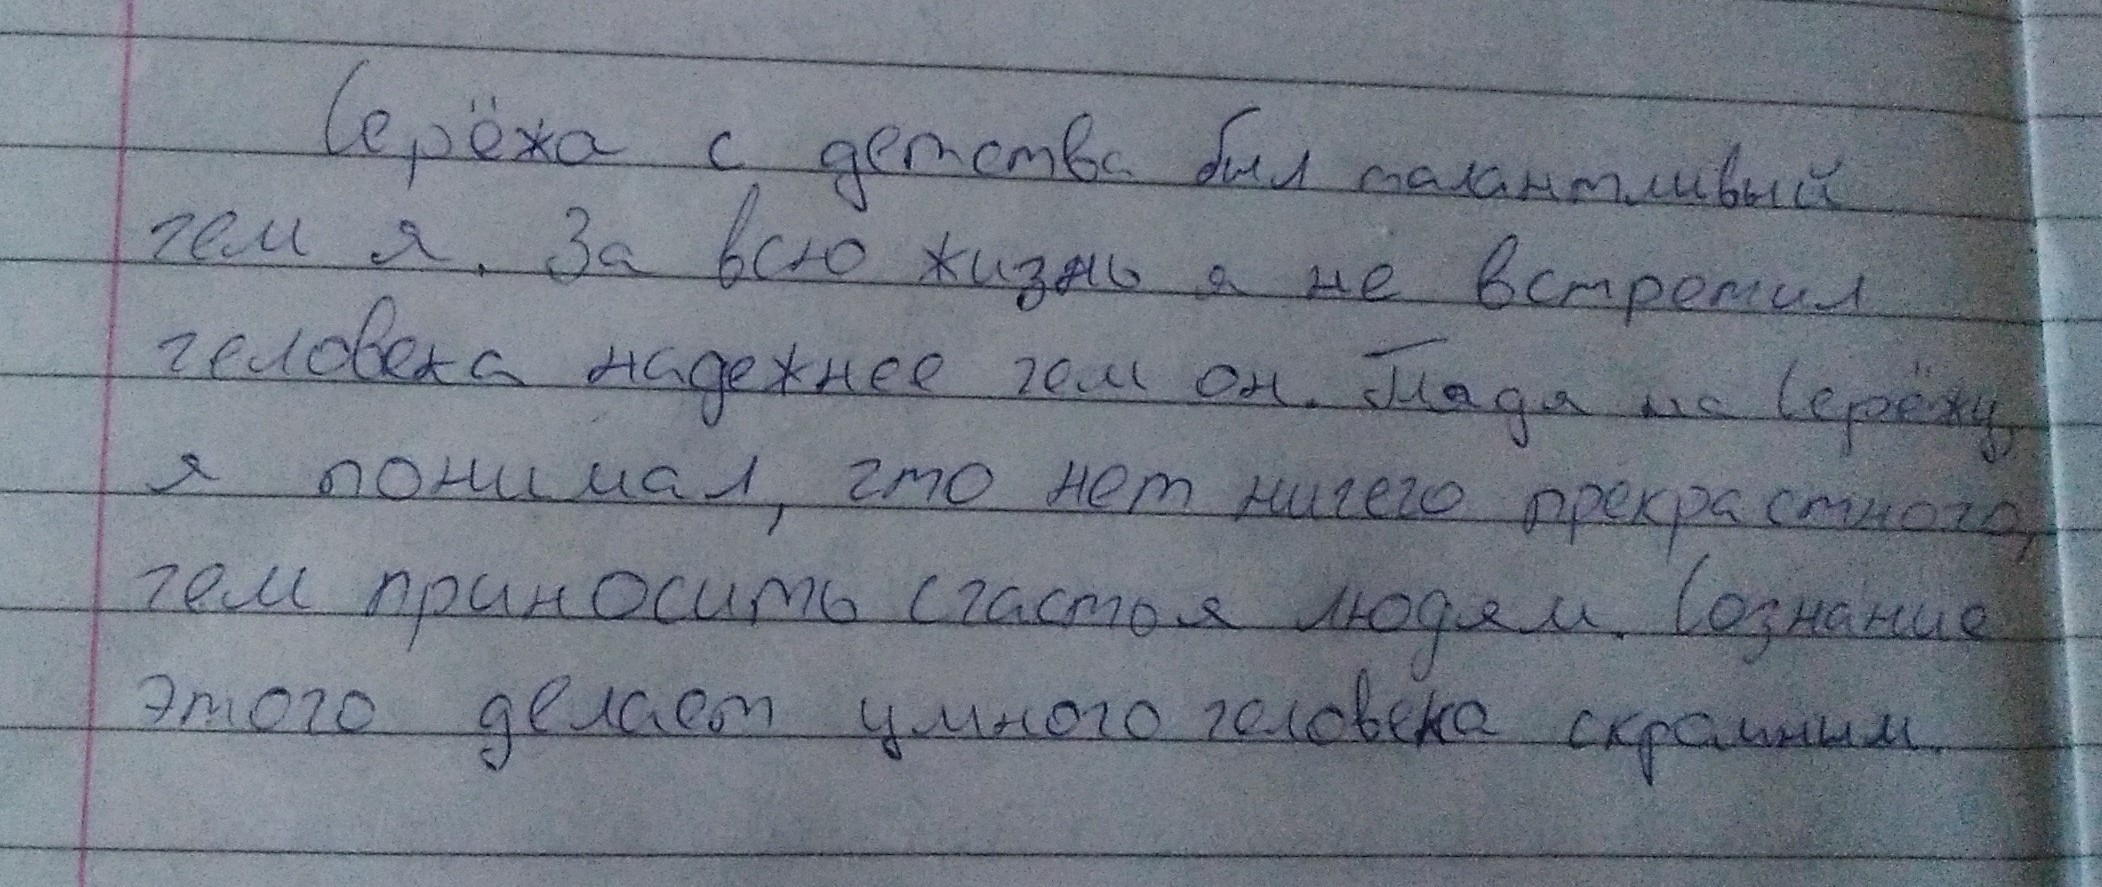 Серёжа с детства был талантливый
чем я. За всю жизнь я не встретил
человека надежнее чем он. Глядя на Серёжу,
я понимал, что нет ничего прекрастного,
чем приносить счастья людям. Сознание
этого делает умного человека скрамным.